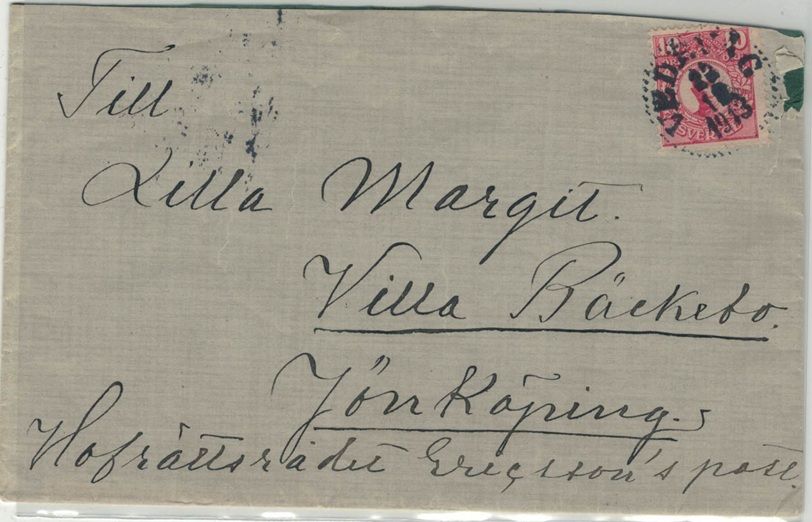 Till
Lilla Margit.
Villa Bäckebo.
Jönköping.
Hofrättsrådet Ericsson's post.
10
SVERIGE
1913